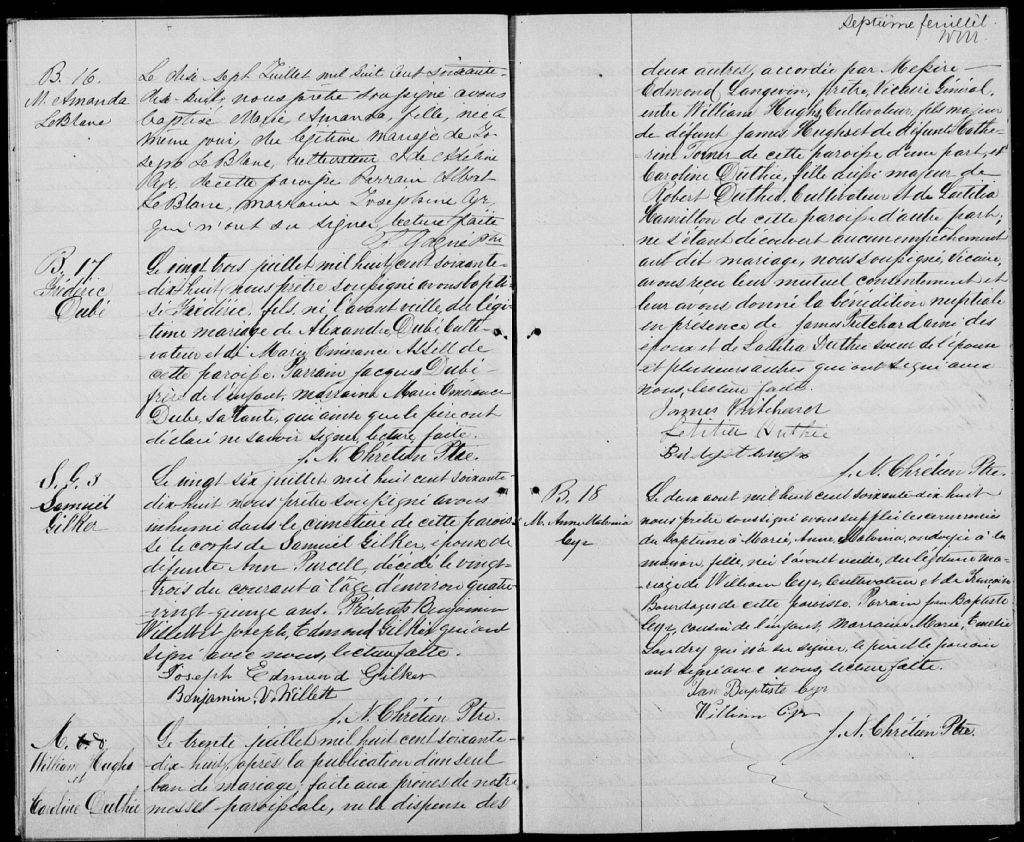 B. 16.
M. Amanda
LeBlanc
Le dix-sept Juillet mil huit cent soixante-
dix-huit, nous prêtre soussigné avons
baptisé Marie Amanda, fille, née le
même jour, du légitime mariage de Jo-
seph Le Blanc, cultivateur et de Adeline
Cyr, de cette paroisse Parrain Albert
LeBlanc, marraine Josephine Cyr,
qui n'ont su signer, lecture faite
Gagné Ptre
B. 17
Fréderic
Dubé
Le vingt trois juillet mil huit cent soixante-
dix-huit, nous prêtre soussigné avons bapti-
sé Fréderic, fils, né l'avant veille, du légi-
time mariage de Alexandre Dubé Culti-
vateur et de Marie Émérance Assell de
cette paroisse. Parrain Jacques Dubé
frère de l'enfant, marraine Marie Émérance
Dubé, sa tante, qui ainsi que le père ont
déclaré ne savoir signer, lecture faite.
J. N. Chrétien Ptre.
S. G. 3
Samuel
Gilker
Le vingt six juillet mil huit cent soixante-
dix-huit nous prêtre soussigné avons
inhumé dans le cimetière de cette parois-
se le corps de Samuel Gilker, époux de
défunte Ann Purcell, décédé le vingt-
trois du courant à l'âge d'environ quatre
vingt-quinze ans. Présents Benjamin
Willett et Joseph, Edmond Gilker qui ont
signé avec nous, lecture faite.
Joseph Edmund Gilker
Benjamin V. Willett
J. N. Chrétien Ptre.
M.
William Hughs
et
Caroline Duthie
Le trente juillet mil huit cent soixante-
dix-huit, après la publication d'un seul
ban de mariage faite aux prônes de notre
messe paroissiale, vu la dispense des
Septième feuillet.
deux autres, accordée par Messire
Edmond Langevin, prêtre, Vicaire Général,
entre William Hughs, Cultivateur, fils majeur
de défunt James Hughs et de défunte Cathe-
rine Torner de cette paroisse d'une part, et
Caroline Duthie, fille aussi majeur de
Robert Duthie, Cultivateur et de Lætitia
Hamilton de cette paroisse d'autre part,
ne s'étant découvert aucun empêchement
au dit mariage, nous soussigné, Vicaire,
avons reçu leur mutuel consentement et
leur avons donné la bénédiction nuptiale
en présence de James Pritchard ami des
époux et de Lætitia Duthie sœur de l'épouse
et plusieurs autres qui ont signé avec
nous, lecture faite.
James Pritchard
Letitia Duthie
J. N. Chrétien Ptre.
B. 18
M. Anne Malvina
Cyr
Le deux aout mil huit cent soixante-dix-huit
nous prêtre soussigné avons supplié les ceremonies
du baptême à Marie, Anne, Malvina, ondoyée à la
maison, fille, née l'avant veille, du légitime ma-
riage de William Cyr, Cultivateur et de Françoise
Bourdages de cette paroisse. Parrain Jean Baptiste
Cyr, cousin de l'enfant, Marraine Marie, Emelie
Landry qui n'a su signer, le père et le parrain
ont signé avec nous, lecture faite.
Jan Baptiste Cyr
William Cyr
J. N. Chrétien Ptre.